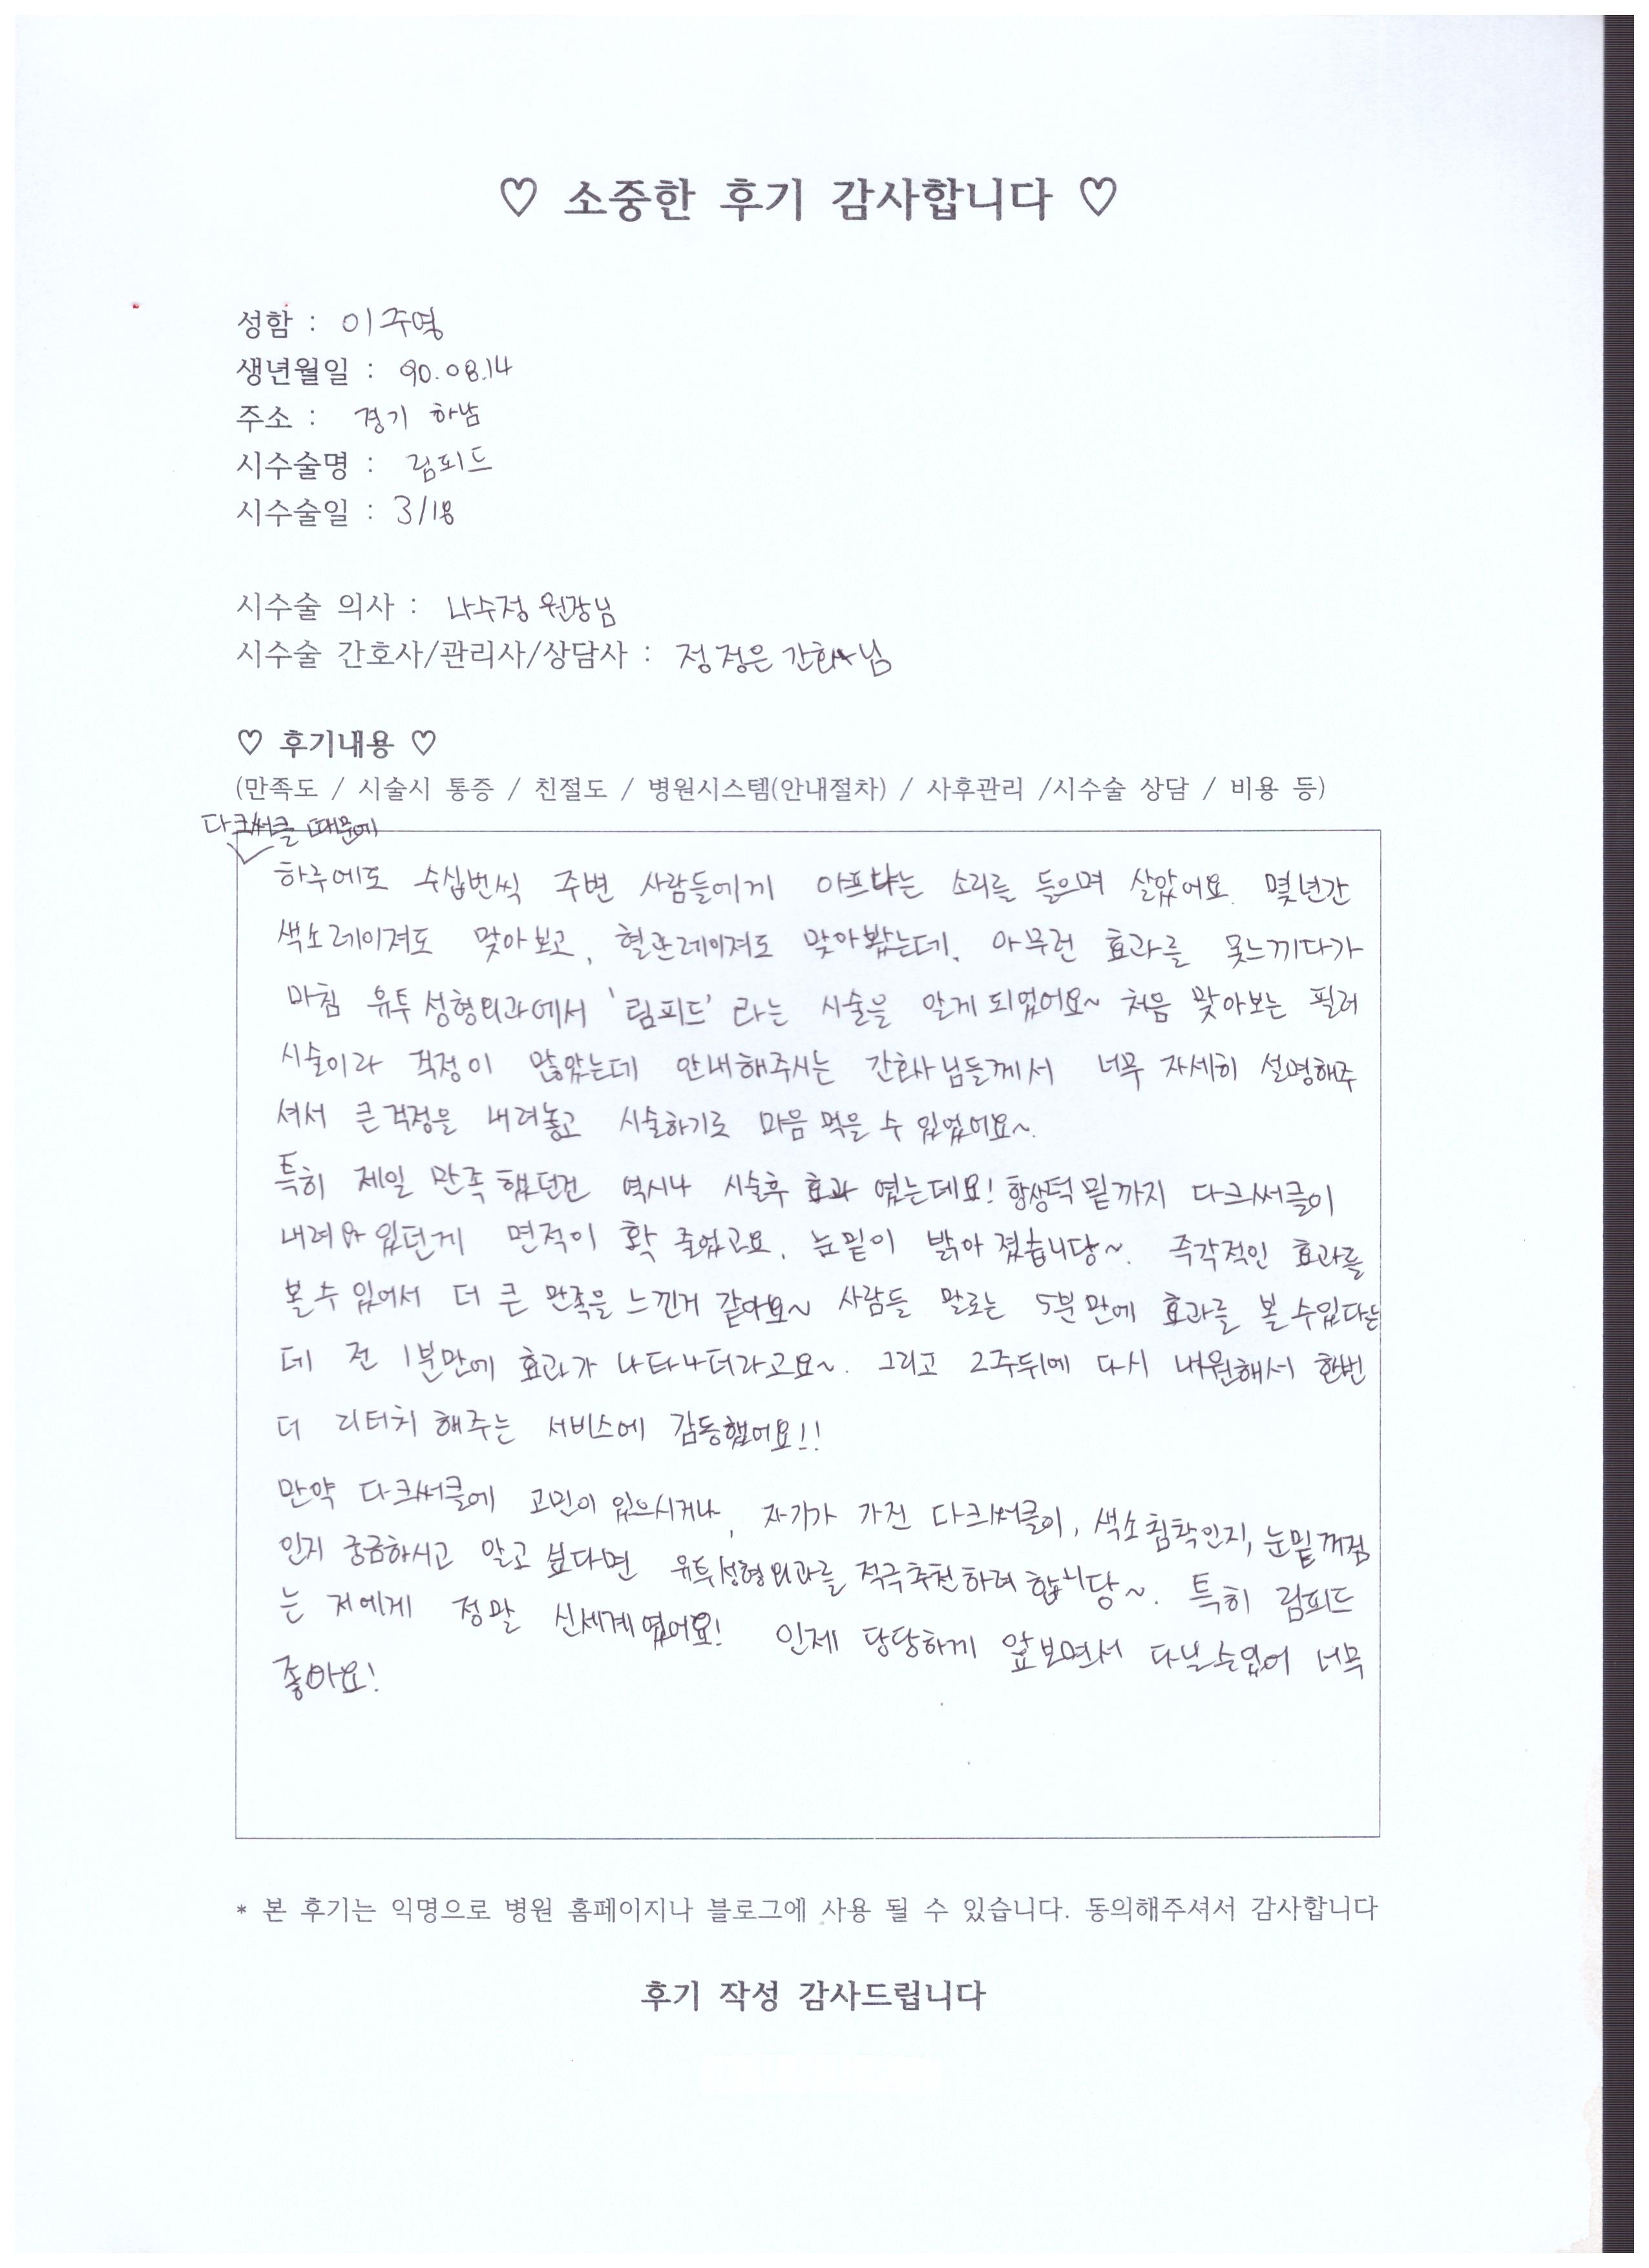 ♡ 소중한 후기 감사합니다 ♡
성함 : 이주영
생년월일 : 90.08.14
주소 : 경기 하남
시수술명 : 림피드
시수술일 : 3/18
시수술 의사 : 나수정 원장님
시수술 간호사/관리사/상담사 : 정정은 간호사님
♡ 후기내용 ♡
(만족도 / 시술시 통증 / 친절도 / 병원시스템(안내절차) / 사후관리 /시수술 상담 / 비용 등)
다크써클 때문에
하루에도 수십번씩 주변 사람들에게 아프냐는 소리를 들으며 살았어요. 몇년간
색소레이져도 맞아보고, 혈관레이져도 맞아봤는데, 아무런 효과를 못느끼다가
마침 유투성형외과에서 '림피드' 라는 시술을 알게되었어요~ 처음 맞아보는 필러
시술이라 걱정이 많았는데 안내해주시는 간호사님들께서 너무 자세히 설명해주
셔서 큰걱정을 내려놓고 시술하기로 마음먹을 수 있었어요~.
특히 제일 만족했던건 역시나 시술후 효과 였는데요! 항상턱밑까지 다크써클이
내려와 있던게 면적이 확 줄었고요, 눈밑이 밝아졌습니당~. 즉각적인 효과를
볼수 있어서 더 큰 만족을 느낀거 같아요~ 사람들 말로는 5분만에 효과를 볼수있다는
데 전 1분만에 효과가 나타나더라고요~. 그리고 2주뒤에 다시 내원해서 한번
더 리터치 해주는 서비스에 감동했어요!!
만약 다크써클에 고민이 있으시거나, 자기가 가진 다크써클이, 색소침착인지, 눈밑꺼짐
인지 궁금하시고 알고 싶다면 유투성형외과를 적극추천하려 합니당~. 특히 림피드
는 저에게 정말 신세계였어요! 인제 당당하게 앞보면서 다닐수있어 너무
좋아요!
* 본 후기는 익명으로 병원 홈페이지나 블로그에 사용 될 수 있습니다. 동의해주셔서 감사합니다
후기 작성 감사드립니다